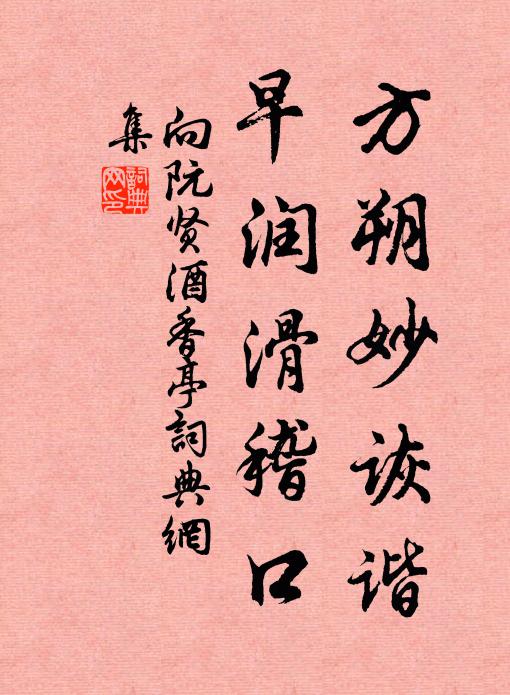 方朔妙诙谐
早润滑稽口
向阮贤酒香亭詞典網
集
詞典网印